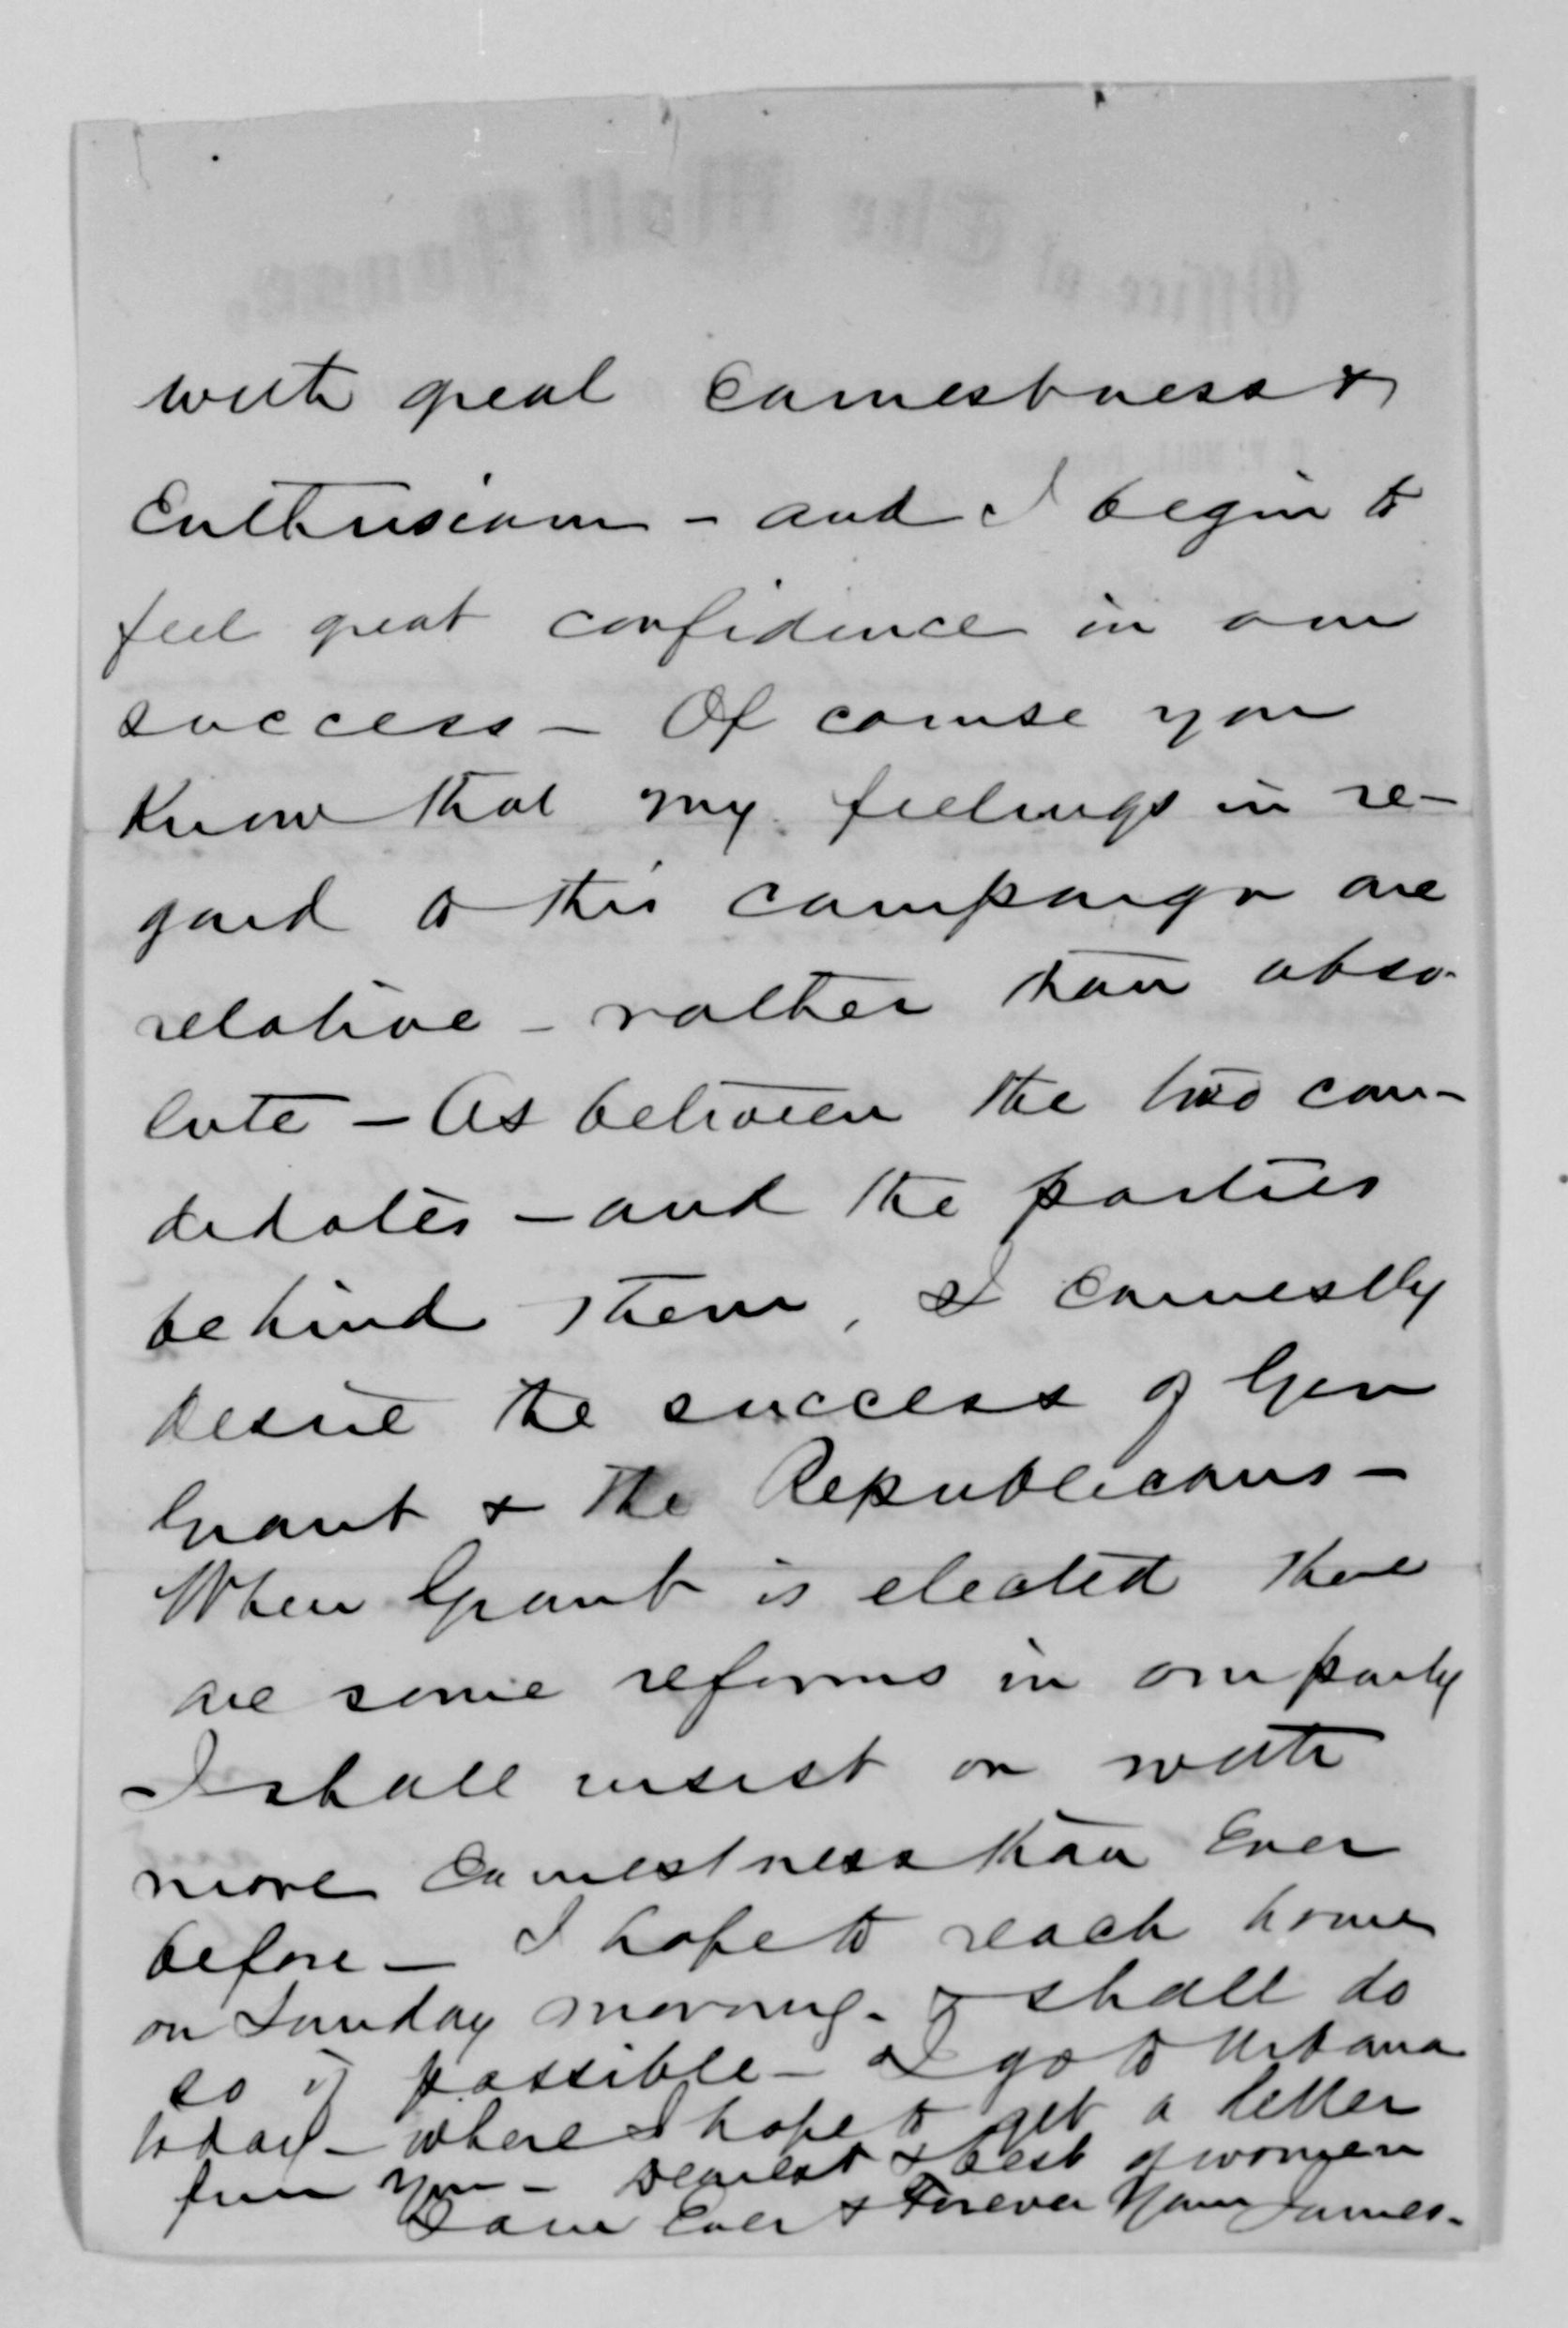 with great earnestness &
enthusiasm – and I begin to
feel great confidence in our
success – Of course you
know that my feelings in re-
gard to this campaign are
relative – rather than abso-
lute – As between the two can-
didates – and the parties
behind them, I earnestly
desire the success of Gen
Grant & the Republicans –
When Grant is elected there
are some reforms in our party
I shall insist on with
more earnestness than ever
before – I hope to reach home
on Sunday morning. & shall do
so if possible – I go to Urbana
today – where I hope to get a letter
from you – Dearest & best of women
I am Ever & Forever Your James.